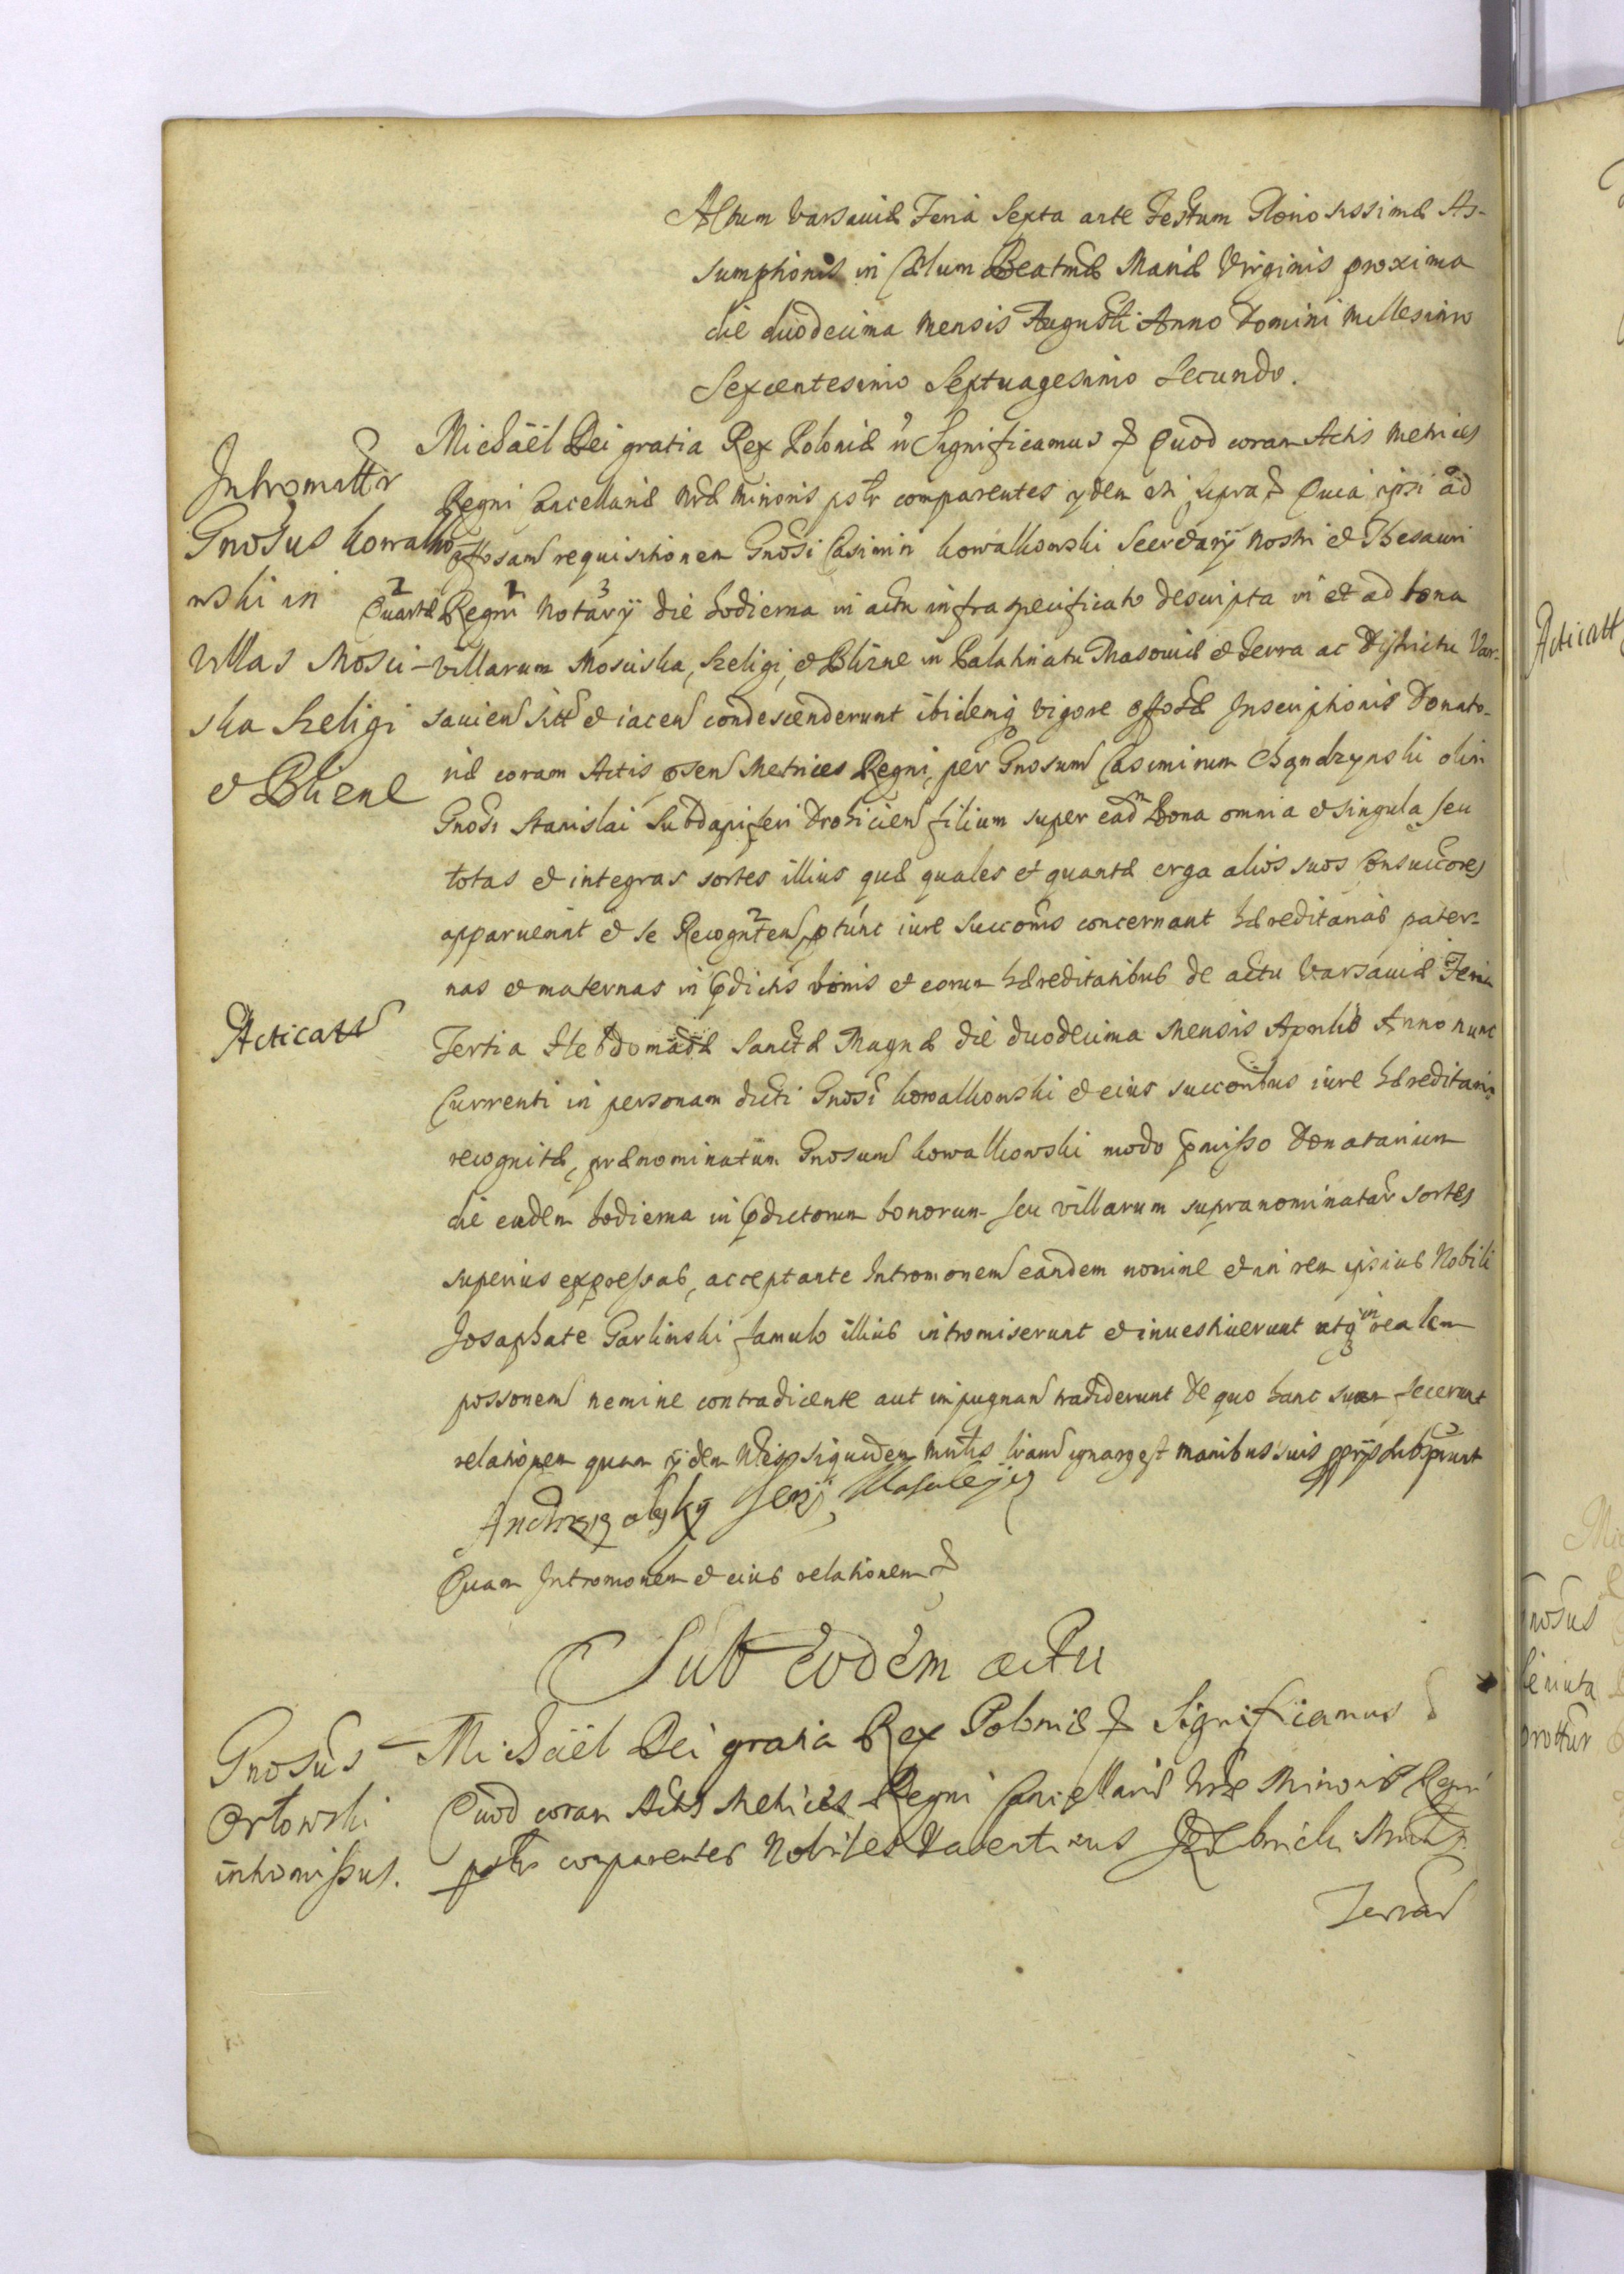 Actum Varsaviæ Feria Sexta ante Festum Gloriosissimæ As-
sumptionis in Cælum Beatmæ Mariæ Virginis proxima
die duodecima mensis Augusti Anno Domini Millesimo
Sexcentesimo Septuagesimo Secundo.
Intromittr
Gnosus Kowalko
wski in
villas Mosci-
ska Szeligi
et Blizne
Michäel Dei gratia Rex Poloniæ Significamus Quod coram Actis Metrices
Regni Cancellariæ Nræ Minoris pstr comparentes ydem uti supra Quia ipsi ad
offosam requisitionem Gnosi Casimiri Kowalkowski Secretarÿ Nostri et Thesauri
2 1 3
Quartæ Regni Notarÿ die hodierna in actu infraspecificato descripta in et ad bona
villarum Mosciska, Szeligi, et Blizne in Palatinatu Masoviæ et Terra ac Districtu Var-
savien sitt et iacen condescenderunt ibidemq vigore offosæ Inscriptionis Donato-
riæ coram Actis psen Metrices Regni, per Gnosum Casimirum Chądzynski olim
Gnosi Stanislai Subdapiferi Drohicien filium super eadm Bona omnia et singula seu
totas et integras sortes illius quæ quales et quantæ erga alios suos Consuccores
apparuerint et se Recogntem ptunc iure succonis concernant hæreditarias pater-
nas et maternas in pdictis bonis et eorum hæreditatibus de actu Varsaviæ Feria
Acticatt
Tertia Hebdomadæ Sanctæ Magnæ die duodecima Mensis Aprilis Anno nunc
Currenti in personam dicti Gnosi Kowalkowski et eius succoribus iure hæreditario
recognitæ, prænominatum Gnosum Kowalkowski modo pmisso Donatarium
die eadem hodierna in pdictorum bonorum seu villarum supranominatar sortes
superius expressas, acceptante Intromonem eandem nomine et in rem ipsius Nobili
Josaphate Garlinski famulo illius intromiserunt et investiverunt atq in realem
possonem nemine contradicente aut impugnan tradiderunt de quo hanc suam fecerunt
relationem quam ÿdem manibus suis pprÿs subscpserunt
Quam Intromonem et eius relationem
Sub eodem actu
Gnosus
Orłowski
intromissus.
Michäel Dei gratia Rex Poloniæ Significamus
Quod coram Actis Metrices Regni Cancellariæ Nræ Minoris Regni
pstr comparentes Nobiles
Terrar
Acticatt